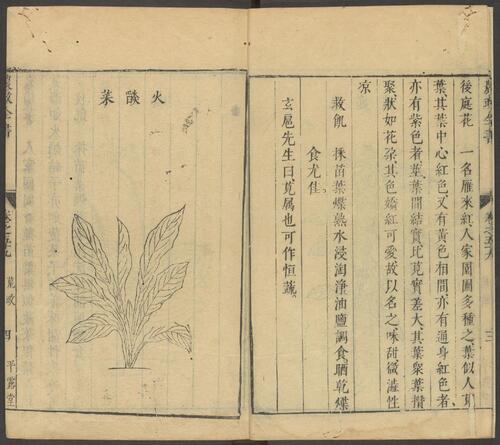 後庭花　一名雁來紅人家園圃多種之葉似人莧
葉其葉中心紅色又有黃色相間亦有通身紅色者
亦有紫色者莖葉間結實比莧實差大其葉衆葉攢
聚狀如花朶其色嬌紅可愛故以名之味甜微澁性
凉
救飢　採苗葉煠熟水浸淘淨油鹽調食晒乾煠
食尤佳
玄扈先生曰莧屬也可作恒蔬
卷之五十九
三
火燄菜
農政全書
卷之五十九　荒政　四　平露堂